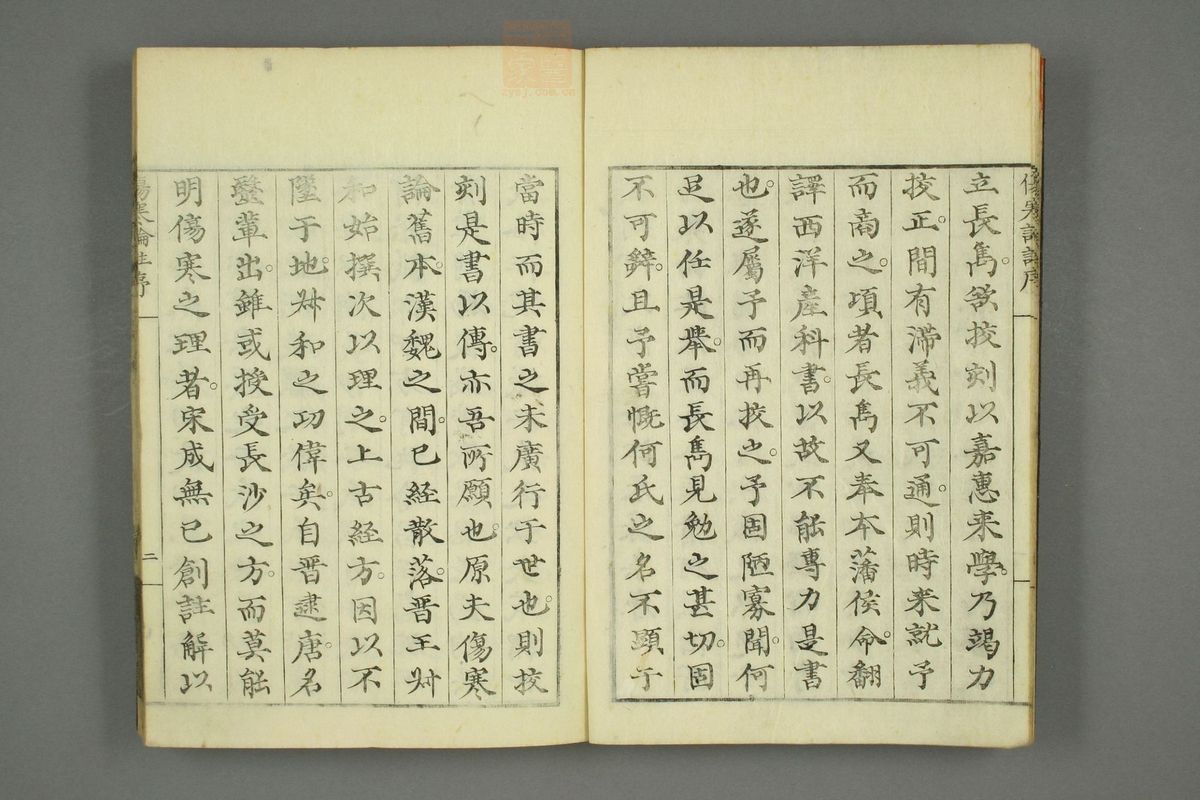 立長雋。欲挍刻以嘉惠来學。乃竭力
挍正。間有滯義不可通。則時来就予
而商之。項者長雋又奉本藩侯命。翻
譯西洋産科書。以故不能專力是書
也。遂屬予而再挍之。予固陋寡聞。何
足以任是舉。而長雋見勉之甚切。固
不可辭。且予嘗慨何氏之名不顕于
當時而其書之未廣行于世也。則挍
刻是書以傳。亦吾所願也。原夫傷寒
論舊本。漢魏之間。已経散落。晋王叔
和始撰次以理之。上古経方。因以不
墜于地。叔和之功偉矣。自晋逮唐。名
毉輩出。雖或授受長沙之方。而莫能
明傷寒之理者。宋成無已創註解以
傷寒論註序
二